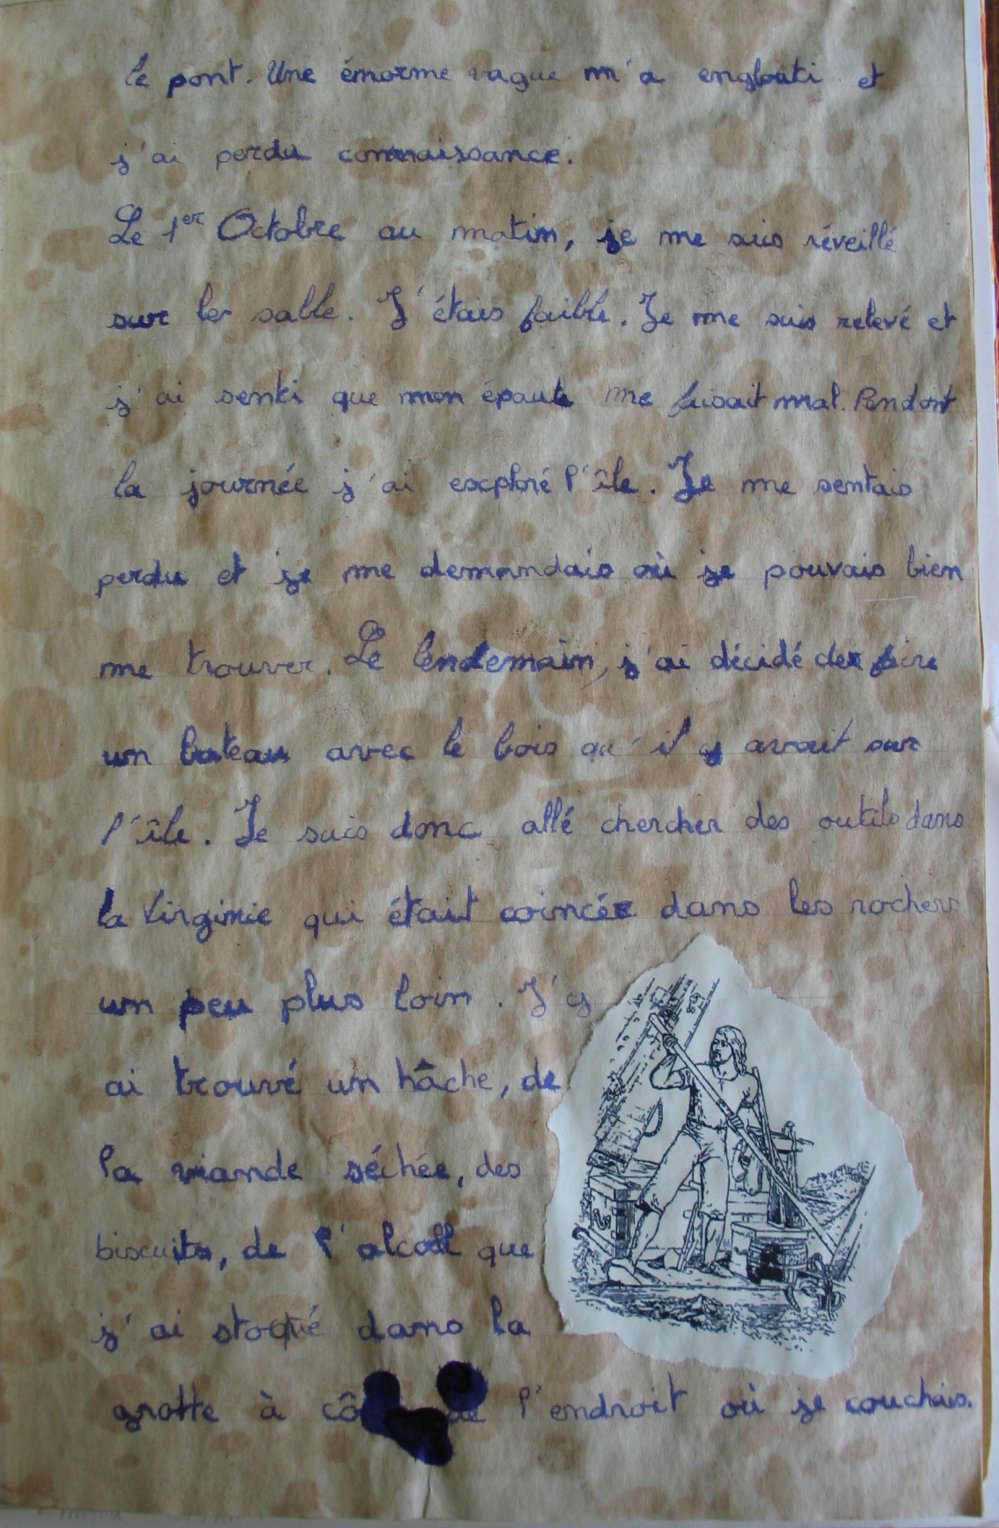 le pont. Une énorme vague m'a englouti et
j'ai perdu connaissance.
Le 1er Octobre au matin, je me suis réveillé
sur le sable. J'étais faible. Je me suis relevé et
j'ai senti que mon épaule me faisait mal. Pendant
la journée j'ai exploré l'île. Je me sentais
perdu et je me demandais où je pouvais bien
me trouver. Le lendemain, j'ai décidé de faire
un bateau avec le bois qu'il y avait sur
l'île. Je suis donc allé chercher des outils dans
la Virginie qui était coincée dans les rochers
un peu plus loin. J'y
ai trouvé un hâche, de
la viande séchée, des
biscuits, de l'alcool que
j'ai stoqué dans la
grotte à de l'endroit où je couchais.